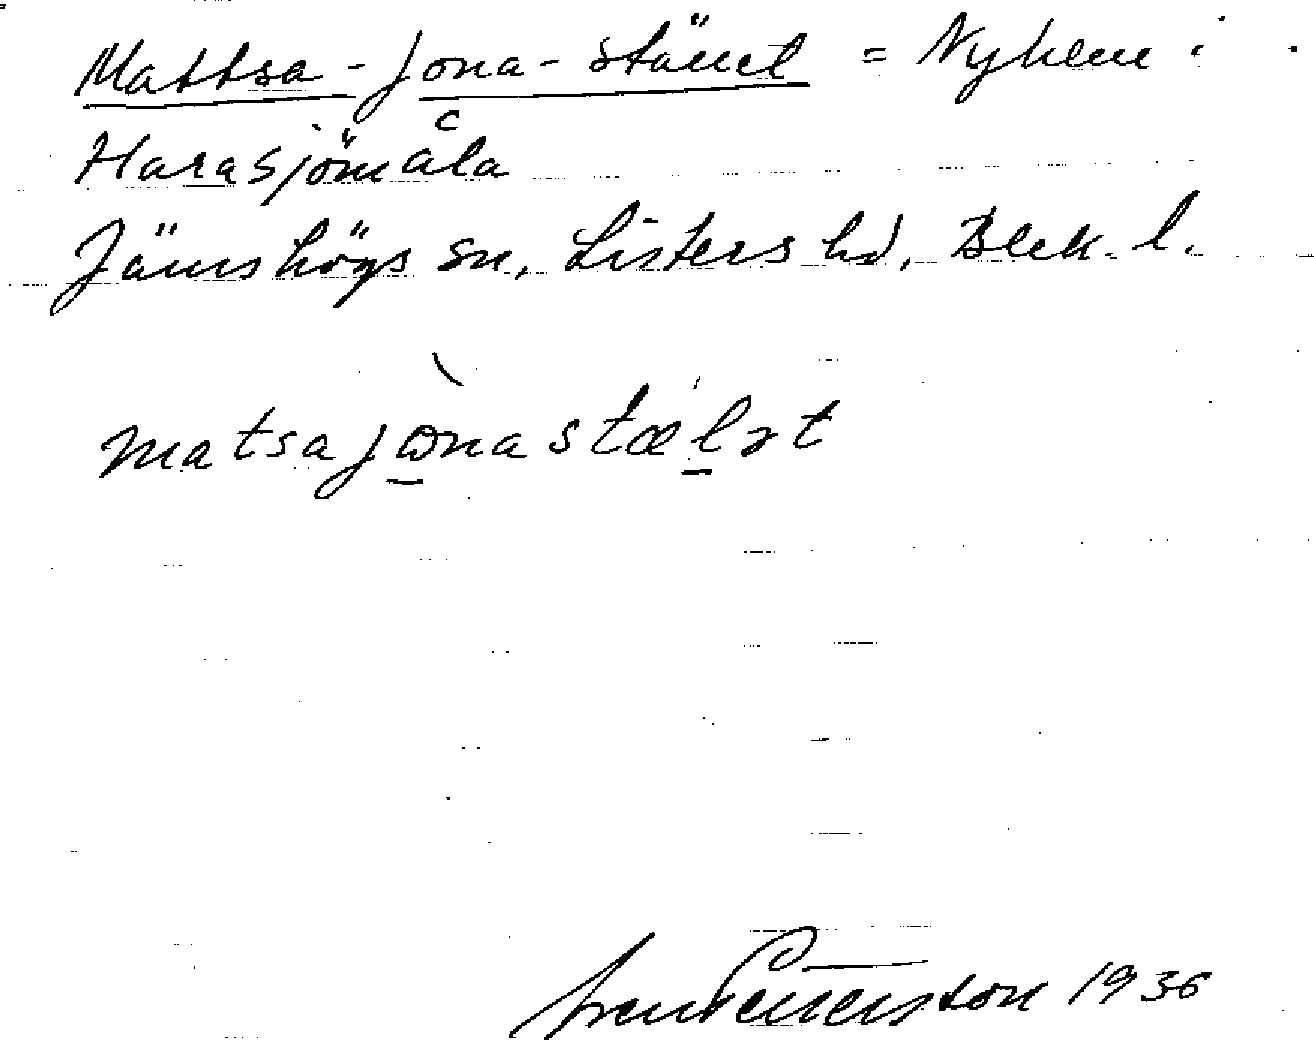 Mattsa-Jona-stället = Nyhem i
Harasjömåla
Jämshögs sn, Listers hd, Blek. l.
matsajonastælət
1936